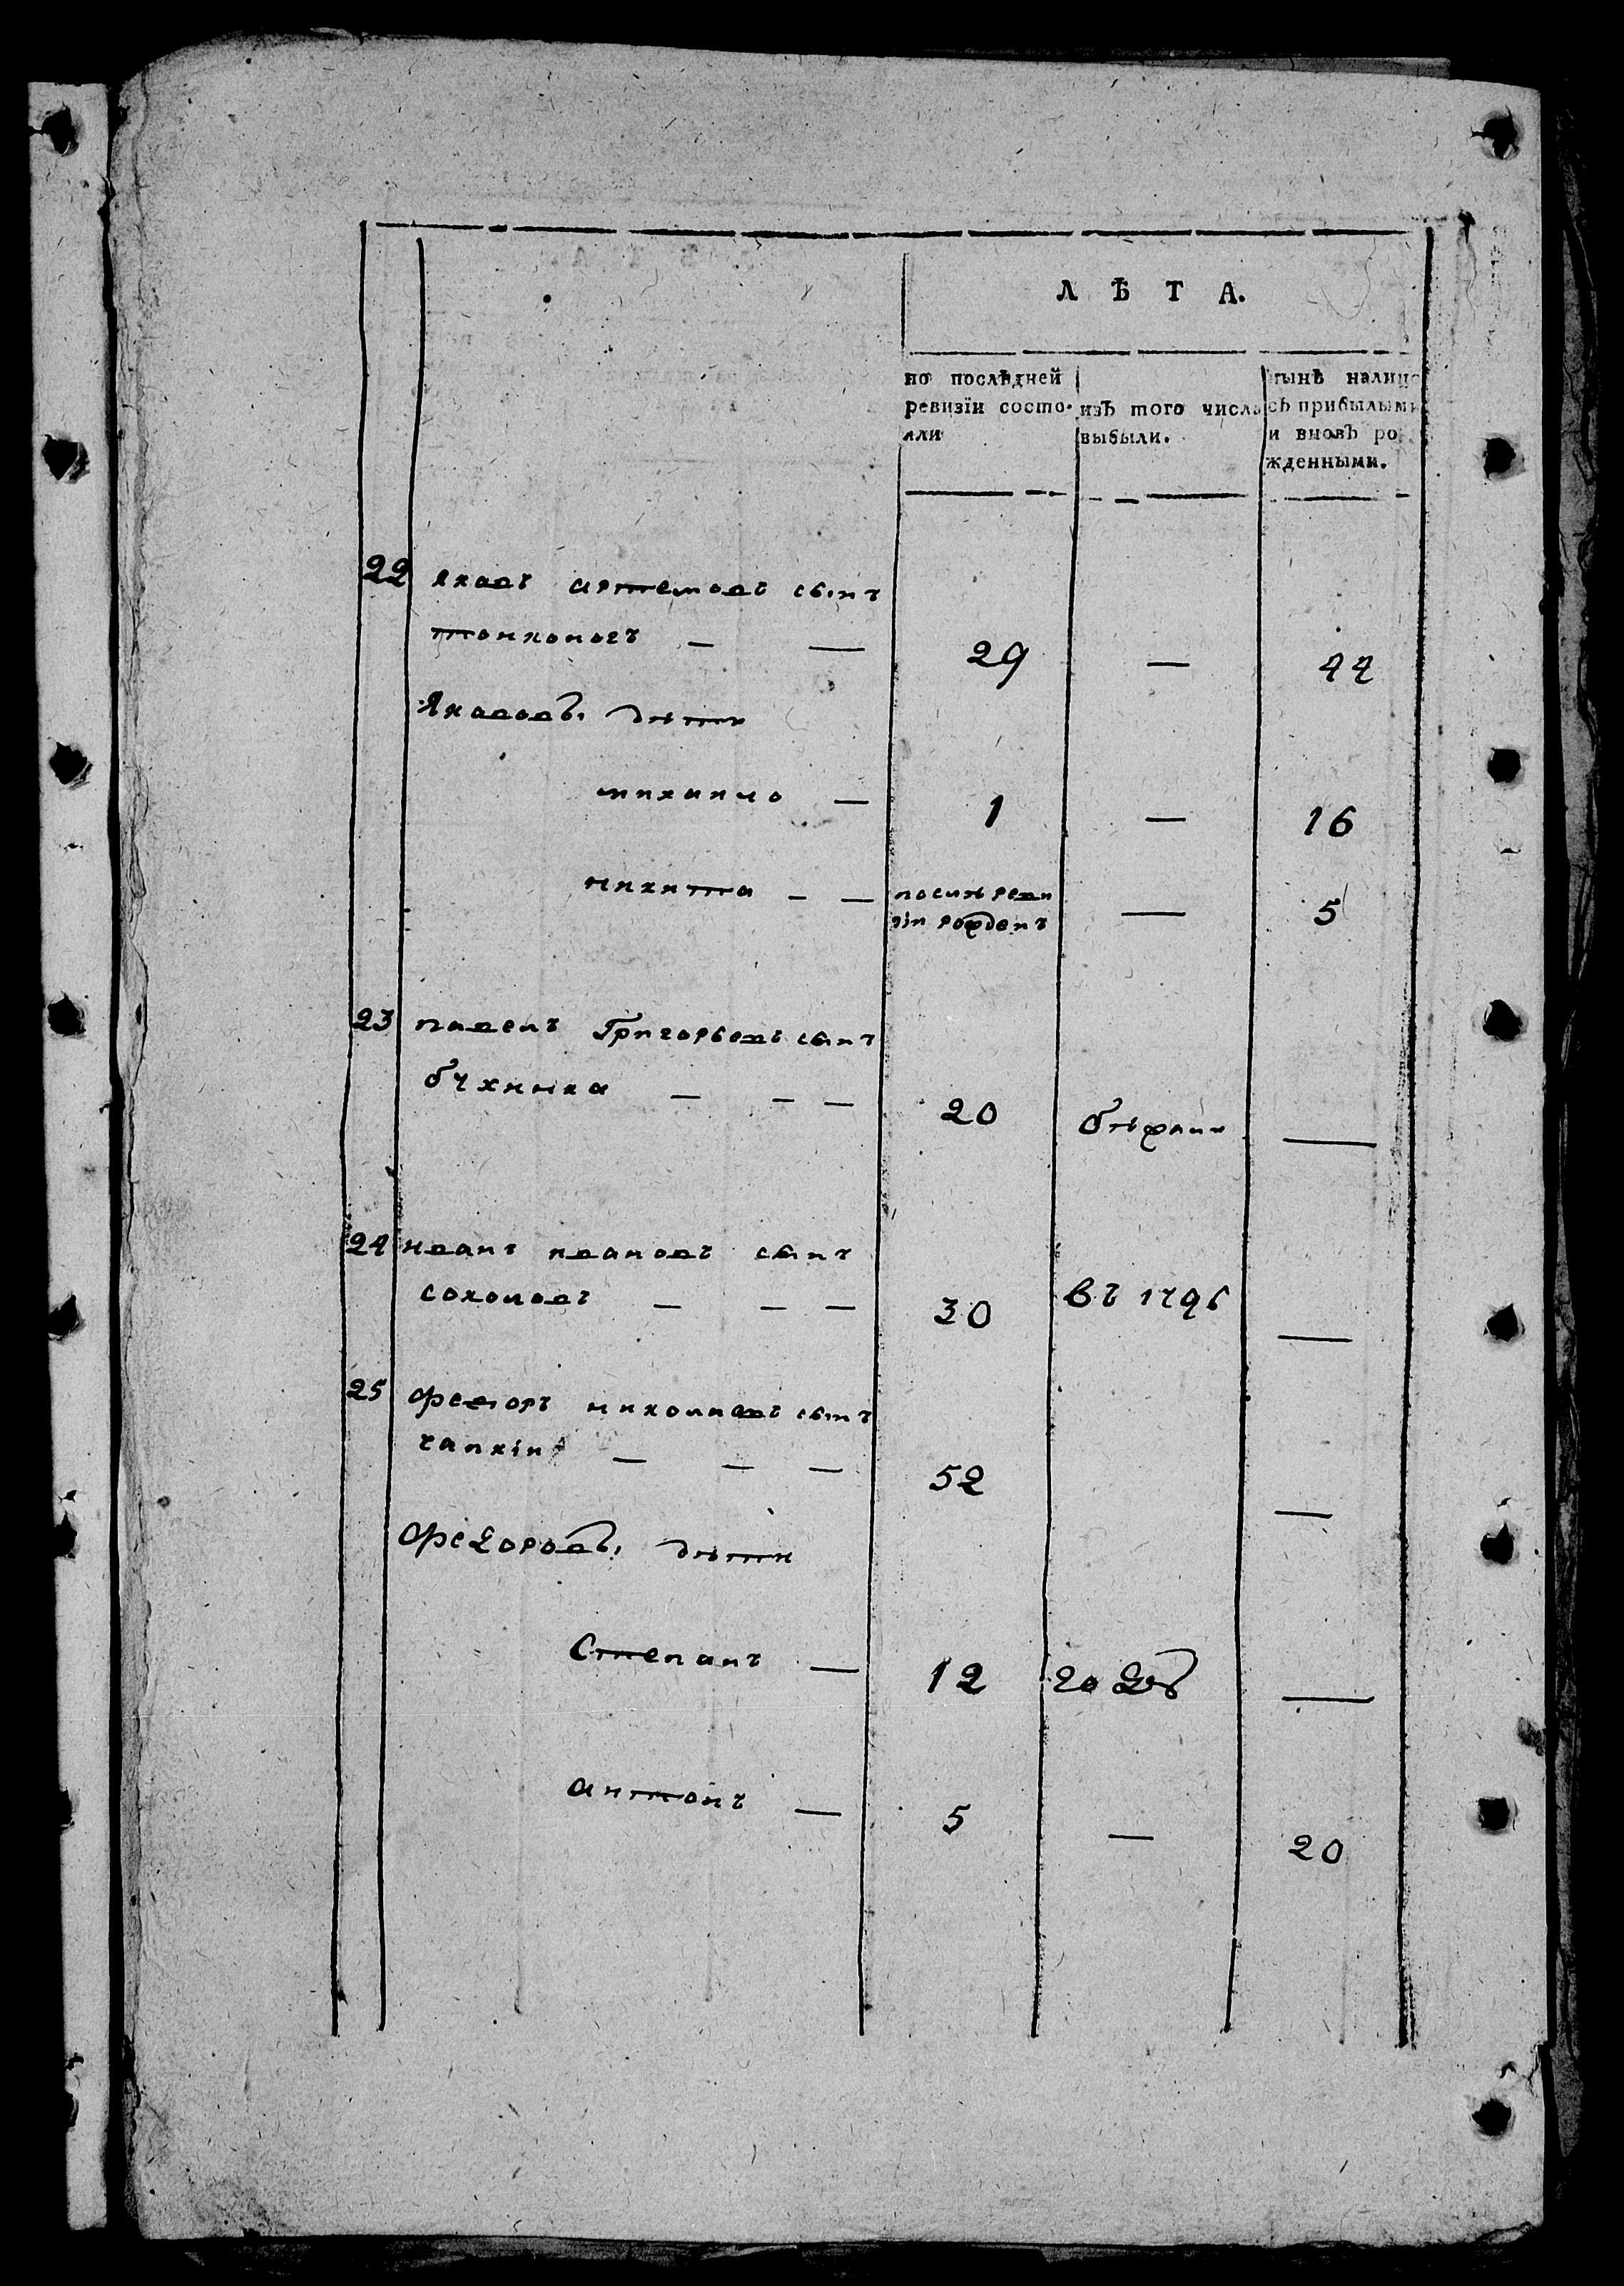 ЛѢТА.
по послѣдней
ревизїи состо-
яли
изъ того числа
выбыли.
нынѣ налицо
съ прибылыми
и вновь ро
жденными.
22 яковъ артемовъ сынъ
тонконогъ — — 29 — 44
Яковов. дѣти
михаило — 1 — 16
никита — — послѣ реви
зіи рожденъ — 5
23 павелъ Григорьевъ сынъ
— — — 20 —
24 иванъ ивановъ сынъ
соколовъ — — — 30 въ 1796 —
25 федоръ николаевъ сынъ
чапкін — — — 52 —
Федоров. дѣти
Степанъ — 12 —
антонъ — 5 — 20